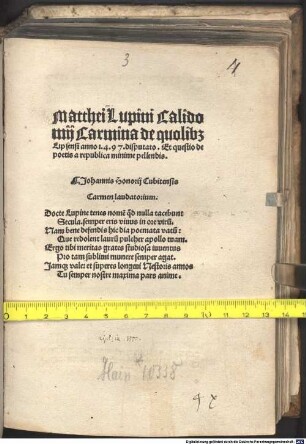 3
4
Matthei Lupini Calido
mij Carmina de quolibz
Lipsensi anno 1.4.97. disputato. Et questio de
poetis a republica minime pellendis.
Johannis Honorij Cubitensis
Carmen laudatorium.
Docte Lupine tenes nomē qd nulla tacebunt
Secula. semper eris vivus in ore virū.
Nam bene defendis hic dia poemata vatū:
Que redolent laurū pulcher apollo tuam.
Ergo tibi meritas grates studiosa iuventus
Pro tam sublimi munere semper agat.
Jamqz vale: et superes longeui Nestoris annos
Tu semper nostre maxima pars anime.
Hain 10338